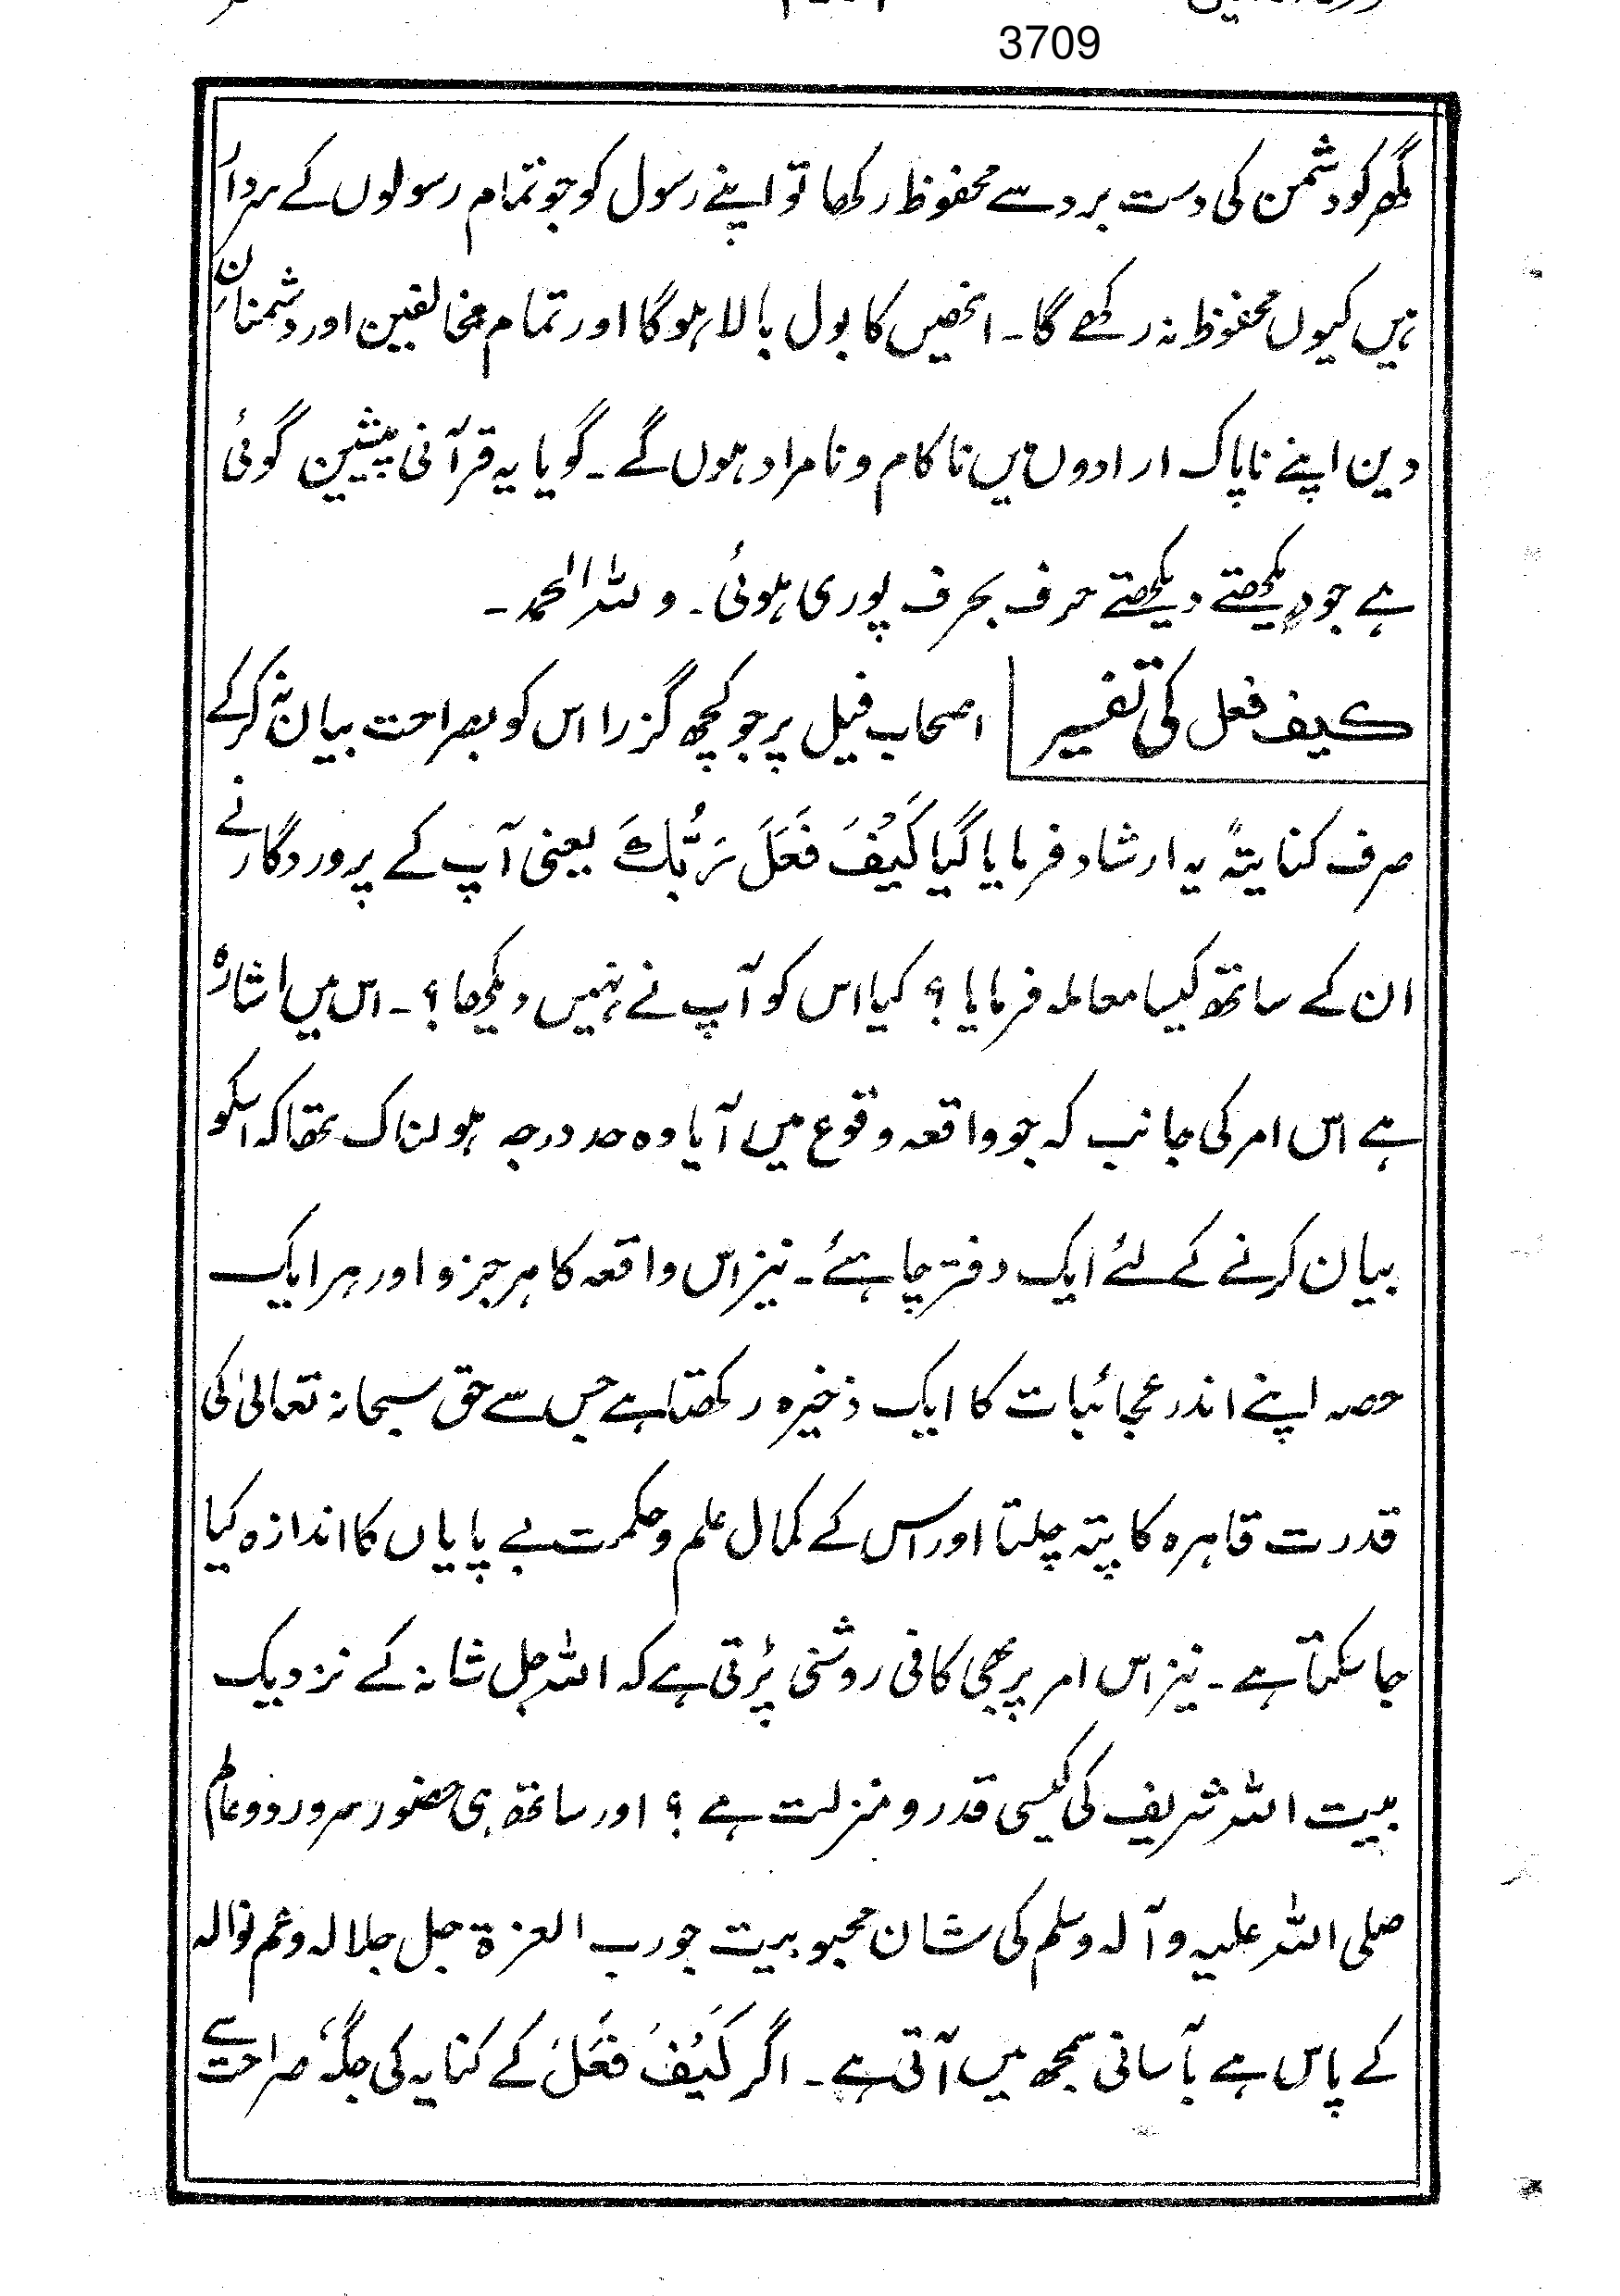 3709
گھر کو دشمن کی دست برد سے محفوظ رکھا تو اپنے رسول کو جو تمام رسولوں کے سردار
ہیں کیوں محفوظ نہ رکھے گا۔ انھیں کا بول بالا ہوگا اور تمام مخالفین اور دشمنانِ
دین اپنے ناپاک ارادوں میں ناکام و نامراد ہوں گے۔ گویا یہ قرآنی پیشین گوئی
ہے جو دیکھتے دیکھتے حرف بحرف پوری ہوئی۔ وللہ الحمد۔
کیف فعل کی تفسیر اصحاب فیل پر جو کچھ گزرا اس کو بصراحت بیان نہ کر کے
صرف کنایتہً یہ ارشاد فرمایا گیا کَیْفَ فَعَلَ رَبُّکَ یعنی آپ کے پروردگار نے
ان کے ساتھ کیسا معاملہ فرمایا؟ کیا اس کو آپ نے نہیں دیکھا؟۔ اس میں اشارہ
ہے اس امر کی جانب کہ جو واقعہ وقوع میں آیا وہ حد درجہ ہولناک تھا کہ اسکو
بیان کرنے کے لئے ایک دفتر چاہئے۔ نیز اس واقعہ کا ہر جزو اور ہر ایک
حصہ اپنے اندر عجائبات کا ایک ذخیرہ رکھتا ہے جس سے حق سبحانہ تعالیٰ کی
قدرت قاہرہ کا پتہ چلتا اور اس کے کمال علم و حکمت بے پایاں کا اندازہ کیا
جا سکتا ہے۔ نیز اس امر پر بھی کافی روشنی پڑتی ہے کہ اللہ جل شانہ کے نزدیک
بیت اللہ شریف کی کیسی قدر و منزلت ہے؟ اور ساتھ ہی حضور سرور دو عالم
صلی اللہ علیہ و آلہ وسلم کی شان محبوبیت جو رب العزۃ جل جلالہ وعم نوالہ
کے پاس ہے بآسانی سمجھ میں آتی ہے۔ اگر کَیْفَ فَعَلَ کے کنایہ کی جگہ صراحت سے